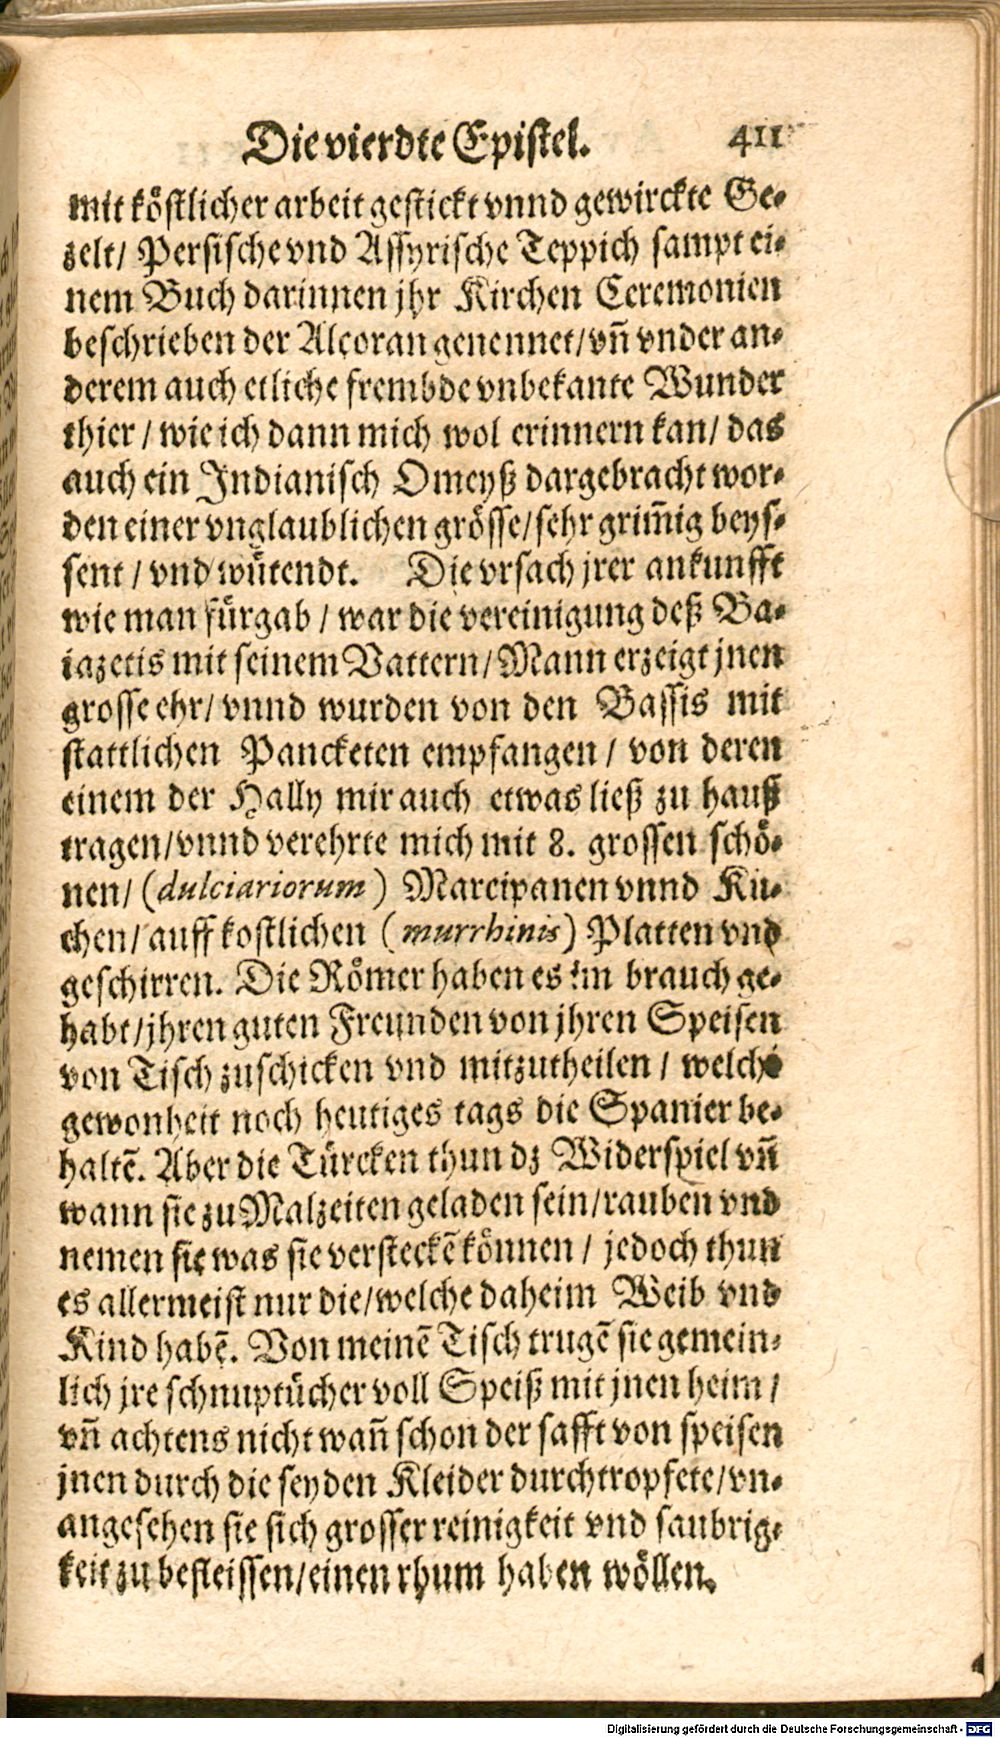 Die vierdte Epistel. 411
mit köstlicher arbeit gestickt vnnd gewirckte Ge-
zelt/ Persische vnd Assyrische Teppich sampt ei-
nem Buch darinnen jhr Kirchen Ceremonien
beschrieben der Alcoran genennet/ vñ vnder an-
derem auch etliche frembde vnbekante Wunder
thier / wie ich dann mich wol erinnern kan/ das
auch ein Indianisch Omeyß dargebracht wor-
den einer vnglaublichen grösse/ sehr grim̃ig beys-
sent / vnd wütendt. Die vrsach jrer ankunfft
wie man fürgab / war die vereinigung deß Ba-
iazetis mit seinem Vattern/ Mann erzeigt jnen
grosse ehr/ vnnd wurden von den Bassis mit
stattlichen Pancketen empfangen / von deren
einem der Hally mir auch etwas ließ zu hauß
tragen/ vnnd verehrte mich mit 8. grossen schö-
nen/ (dulciariorum) Marcipanen vnnd Ku-
chen/ auff kostlichen (murrhinis) Platten vnd
geschirren. Die Römer haben es im brauch ge-
habt/ jhren guten Freunden von jhren Speisen
von Tisch zuschicken vnd mitzutheilen / welche
gewonheit noch heutiges tags die Spanier be-
haltẽ. Aber die Türcken thun dz Widerspiel vñ
wann sie zu Malzeiten geladen sein/ rauben vnd
nemen sie was sie versteckẽ können / jedoch thun
es allermeist nur die/ welche daheim Weib vnd
Kind habẽ. Von meinẽ Tisch trugẽ sie gemein-
lich jre schnuptücher voll Speiß mit jnen heim /
vñ achtens nicht wañ schon der safft von speisen
jnen durch die seyden Kleider durchtropfete/ vn-
angesehen sie sich grosser reinigkeit vnd saubrig-
keit zu befleissen/ einen rhum haben wöllen.
Digitalisierung gefördert durch die Deutsche Forschungsgemeinschaft - DFG